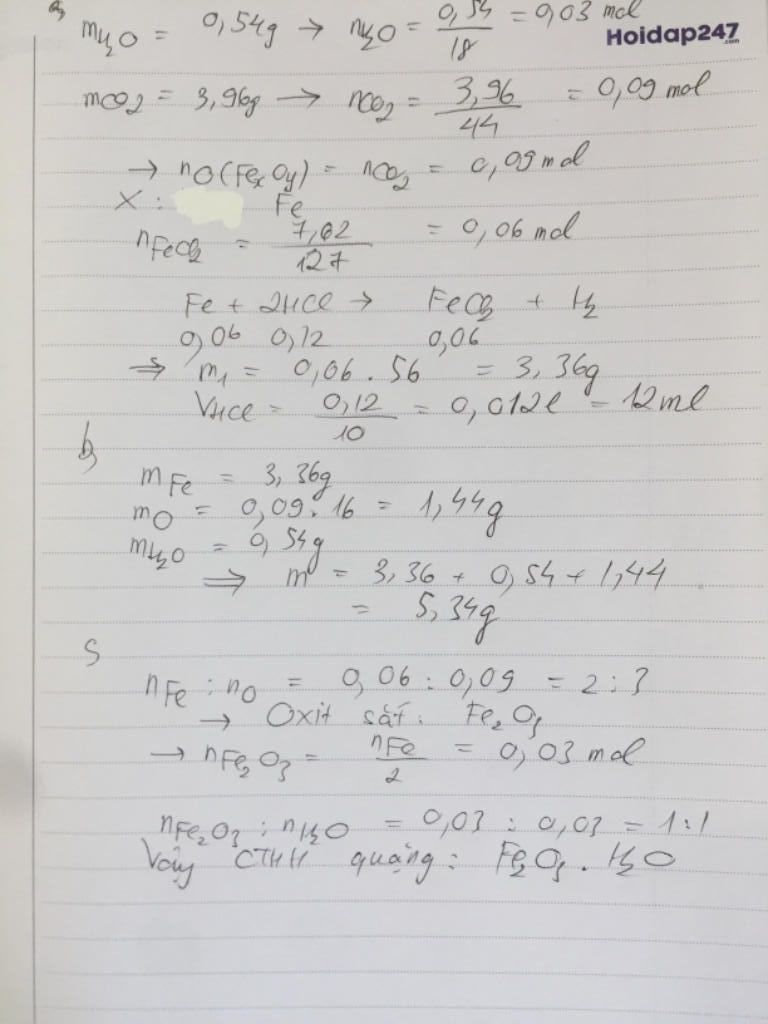 a,
mH₂O = 0,54g → nH₂O = 0,54/18 = 0,03 mol
Hoidap247.com
mCO2 = 3,96g → nCO₂ = 3,96/44 = 0,09 mol
→ nO(FexOy) = nCO₂ = 0,09 mol
X: Fe
nFeCl2 = 7,62/127 = 0,06 mol
Fe + 2HCl → FeCl2 + H₂
0,06 0,12 0,06
⇒ m₁ = 0,06.56 = 3,36g
VHCl = 0,12/10 = 0,012l = 12ml
b,
mFe = 3,36g
mO = 0,09.16 = 1,44g
mH₂O = 0,54g
⇒ m = 3,36 + 0,54 + 1,44
= 5,34g
nFe : nO = 0,06 : 0,09 = 2:3
→ Oxit sắt: Fe₂O₃
→ nFe₂O₃ = nFe/2 = 0,03 mol
nFe₂O₃ : nH₂O = 0,03 : 0,03 = 1:1
Vậy CTHH quặng: Fe₂O₃.H₂O